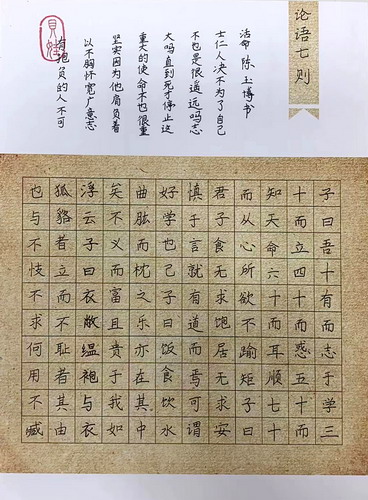 论语七则
子曰吾十有而志于学三
十而立四十而惑五十而
知天命六十而耳顺七十
而从心所欲不踰矩子曰
君子食无求饱居无求安
慎于言就有道而焉可谓
好学也己子曰饭食饮水
曲肱而枕之乐亦在其中
笑不义而富且贵于我如
浮云子曰衣敝缊袍与衣
狐貉者立而不耻者其由
也与不忮不求何用不臧
有抱负的人不可
以不胸怀宽广意志
坚实因为他肩负着
重大的使命不也很重
大吗直到死才停止这
不也是很遥远吗志
士仁人决不为了自己
活命 陈玉博书